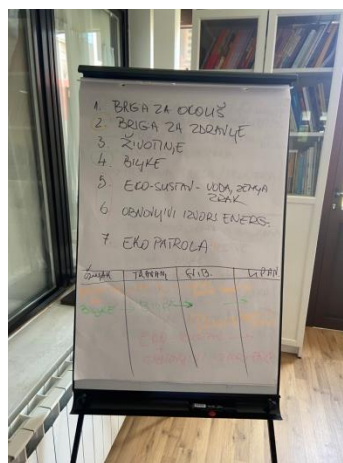 1. BRIGA ZA OKOLIŠ
2. BRIGA ZA ZDRAVLJE
3. ŽIVOTINJE
4. BILJKE
5. EKO-SUSTAV - VODA, ZEMLJA
ZRAK
6. OBNOVLJIVI IZVORI ENERG.
7. EKO PATROLA
OŽUJAK TRAVANJ SVIB. LIPANJ
BILJKE